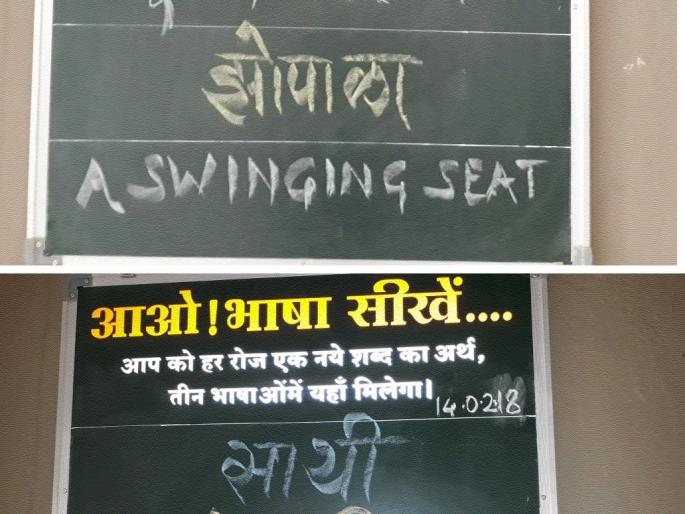 झोपाळा
A SWINGING SEAT
आओ! भाषा सीखें....
आप को हर रोज एक नये शब्द का अर्थ,
तीन भाषाओंमें यहाँ मिलेगा।
14.02.18
साथी